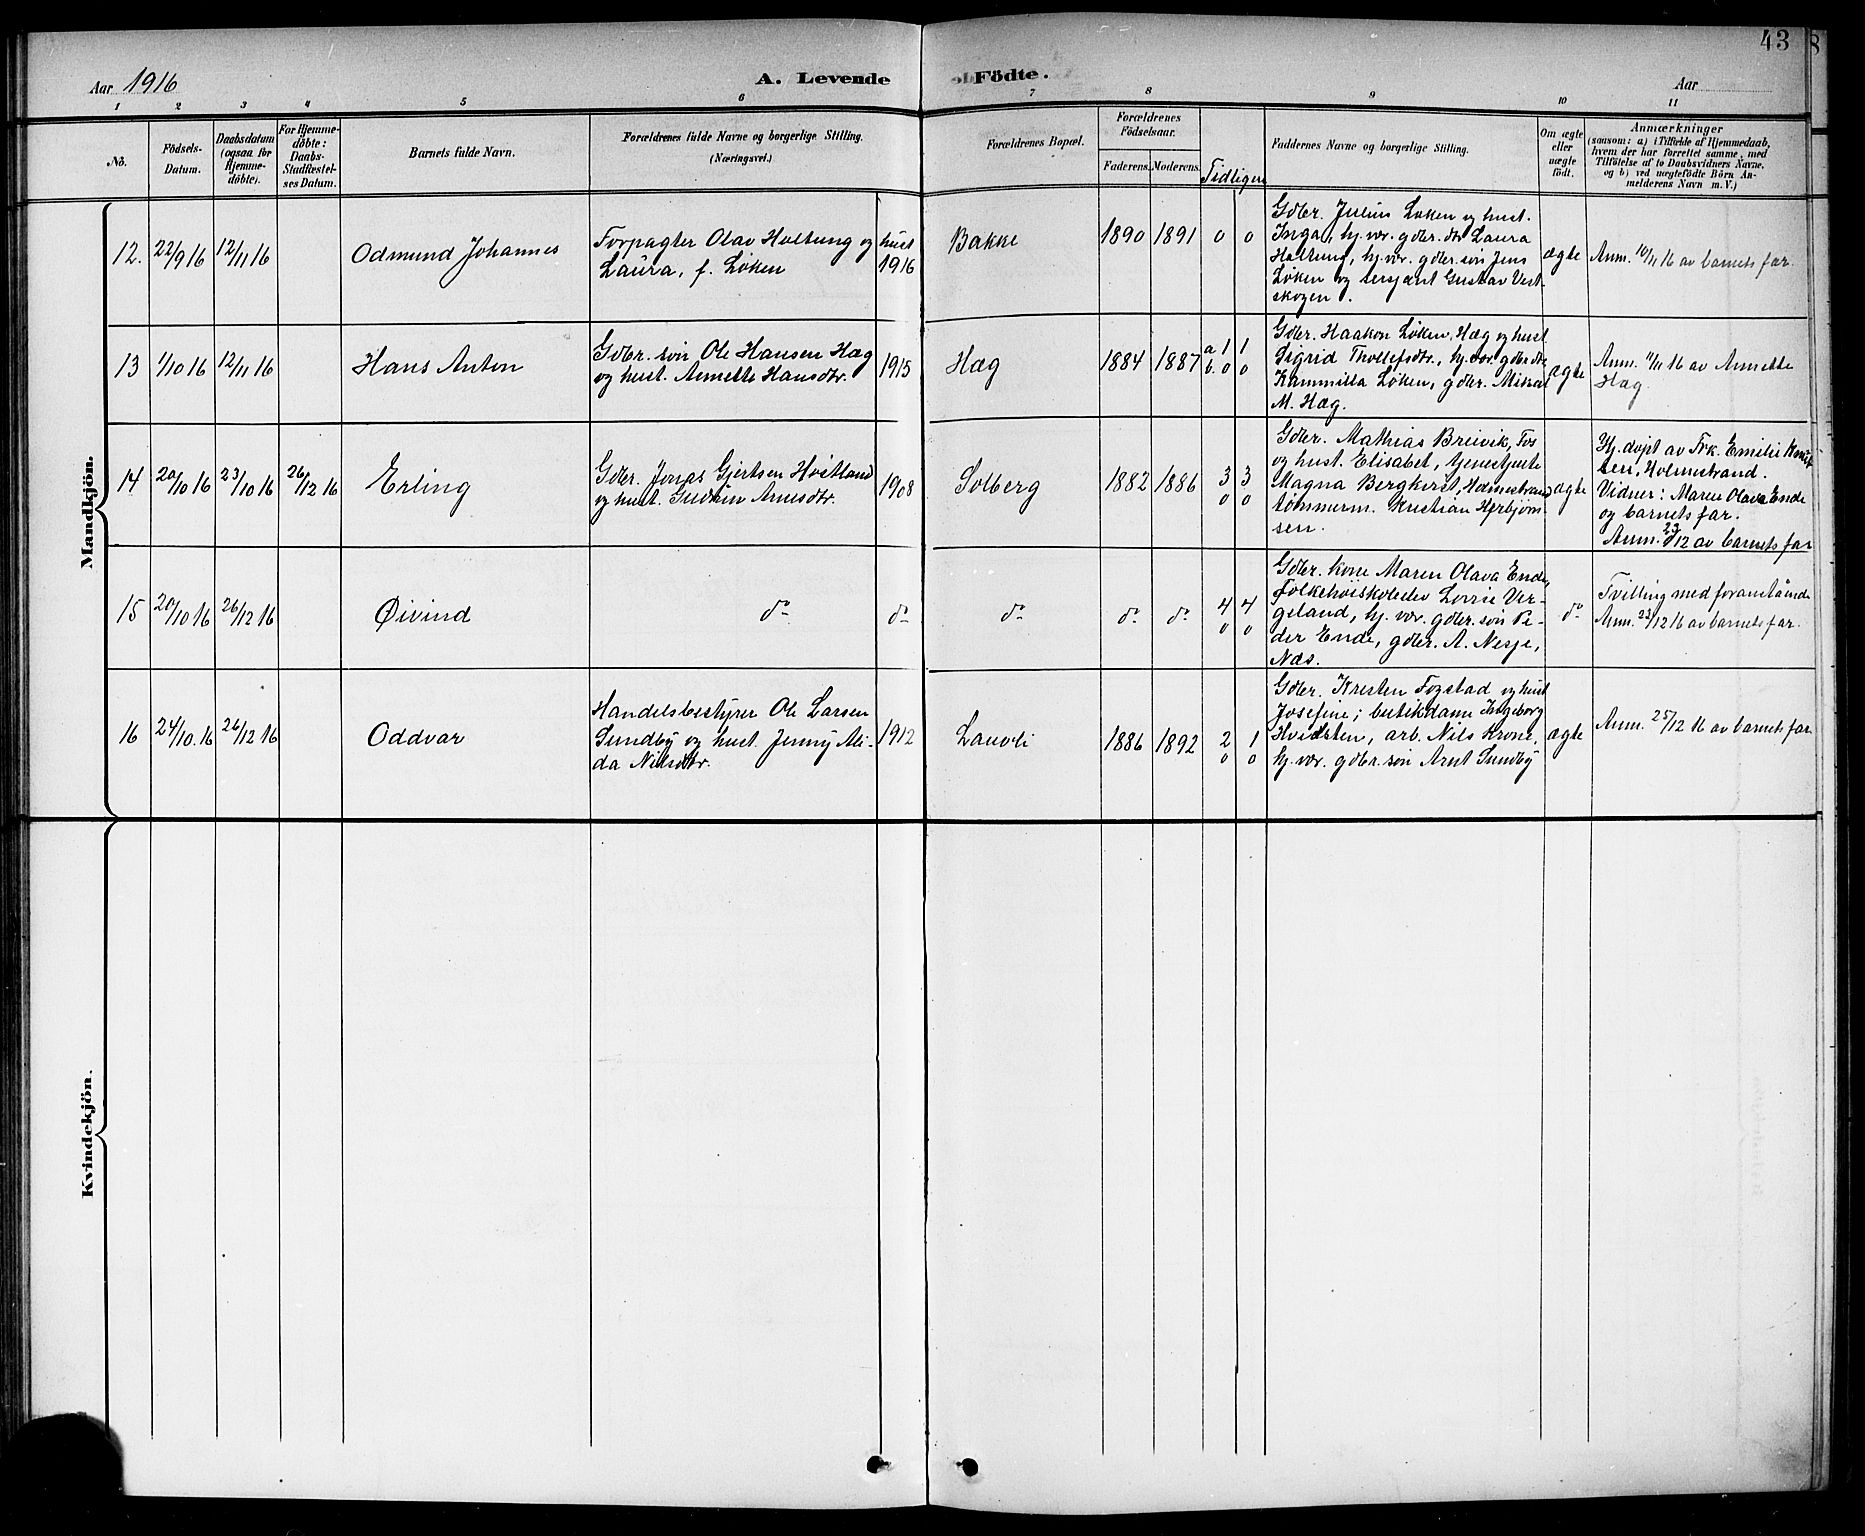 43
Aar 1916
A. Levende
Födte.
Aar
1 2 3 4 5 6 7 8 9 10 11
No.
Födsels-
Datum.
Daabsdatum
(ogsaa for
Hjemme-
döbte).
For Hjemme-
döbte:
Daabs-
Stadfæstel-
ses Datum.
Barnets fulde Navn.
Forældrenes fulde Navne og borgerlige Stilling.
(Næringsvei.)
Forældrenes Bopæl.
Forældrenes
Födselsaar.
Faderens. Moderens.
Tidligere
Faddernes Navne og borgerlige Stilling.
Om ægte
eller
uægte
födt.
Anmærkninger
(saasom: a) i Tilfælde af Hjemmedaab,
hvem der har forrettet samme, med
Tilföielse af to Daabsvidners Navne,
og b) ved uægtefödte Börn An-
melderens Navn m. V.)
Mandkjön.
12. 22/9 16 12/11 16 Odmund Johannes
Forpagter Olav Holtung og
Laura, f. Løken
hust
1916
Bakke 1890 1891 0 0
Gdbr. Julius Løken og hust.
Inga, hj.vær. gdbr. dtr Laura
Holtung, hj.vær. gdbr. søn Jens
Løken og sersjant Gustav Vest-
skogen.
ægte
Anm. 10/11 16 av barnets far.
13 1/10 16 12/11 16 Hans Anton
Gdbr. søn Ole Hansen Hæg
og hust. Annette Hansdtr.
1915
Hæg 1884 1887
a 1 1
b. 0 0
Gdbr. Haakon Løken, Hæg og hust
Sigrid Thollefsdtr., hj.vær gdbr dtr
Kammilla Løken, gdbr. Mikael
M. Hæg.
ægte
Anm. 11/11 16 av Annette
Hæg.
14 20/10 16 23/10 16 26/12 16 Erling
Gdbr. Jonas Gjertsen Høitland
og hust. Gudrun Arnesdtr.
1908
Solberg 1882 1886
3 3
0 0
Gdbr. Mathias Breivik, Fos
og hust. Elisabet, tjenestjente
Magna Bergkerst, Holmestrand
tømmerm. Kristian Herbjørn-
sen.
ægte
Hj. døpt av Frk. Emilie Knut-
sen, Holmestrand.
Vidner: Maren Olava Ende
og barnets far.
Anm. 23/12 av barnets far
15 20/10 16 26/12 16 Øivind
do do do do do
4 4
0 0
Gdbr. kone Maren Olava Ende,
Folkehøiskoleelev Lovise Ver-
geland, hj. vær. gdbr. søn Pe-
der Ende, gdbr. A. Nesje,
Næs.
do
Tvilling med foranstående
Anm. 23/12 16 av barnets far.
16 24/10. 16 26/12 16 Oddvar
Handelsbestyrer Ole Larsen
Sundby og hust. Jenny Ali-
da Nilsdtr.
1912
Lauvli 1886 1892
2 1
0 0
Gdbr. Kresten Fogstad og hust
Josefine; butikdame Ingeborg
Hvidsten, arb. Nils Krone,
hj. vær. gdbr. søn Arnt Sundby
ægte
Anm. 25/12 16 av barnets far
Kvindekjön.